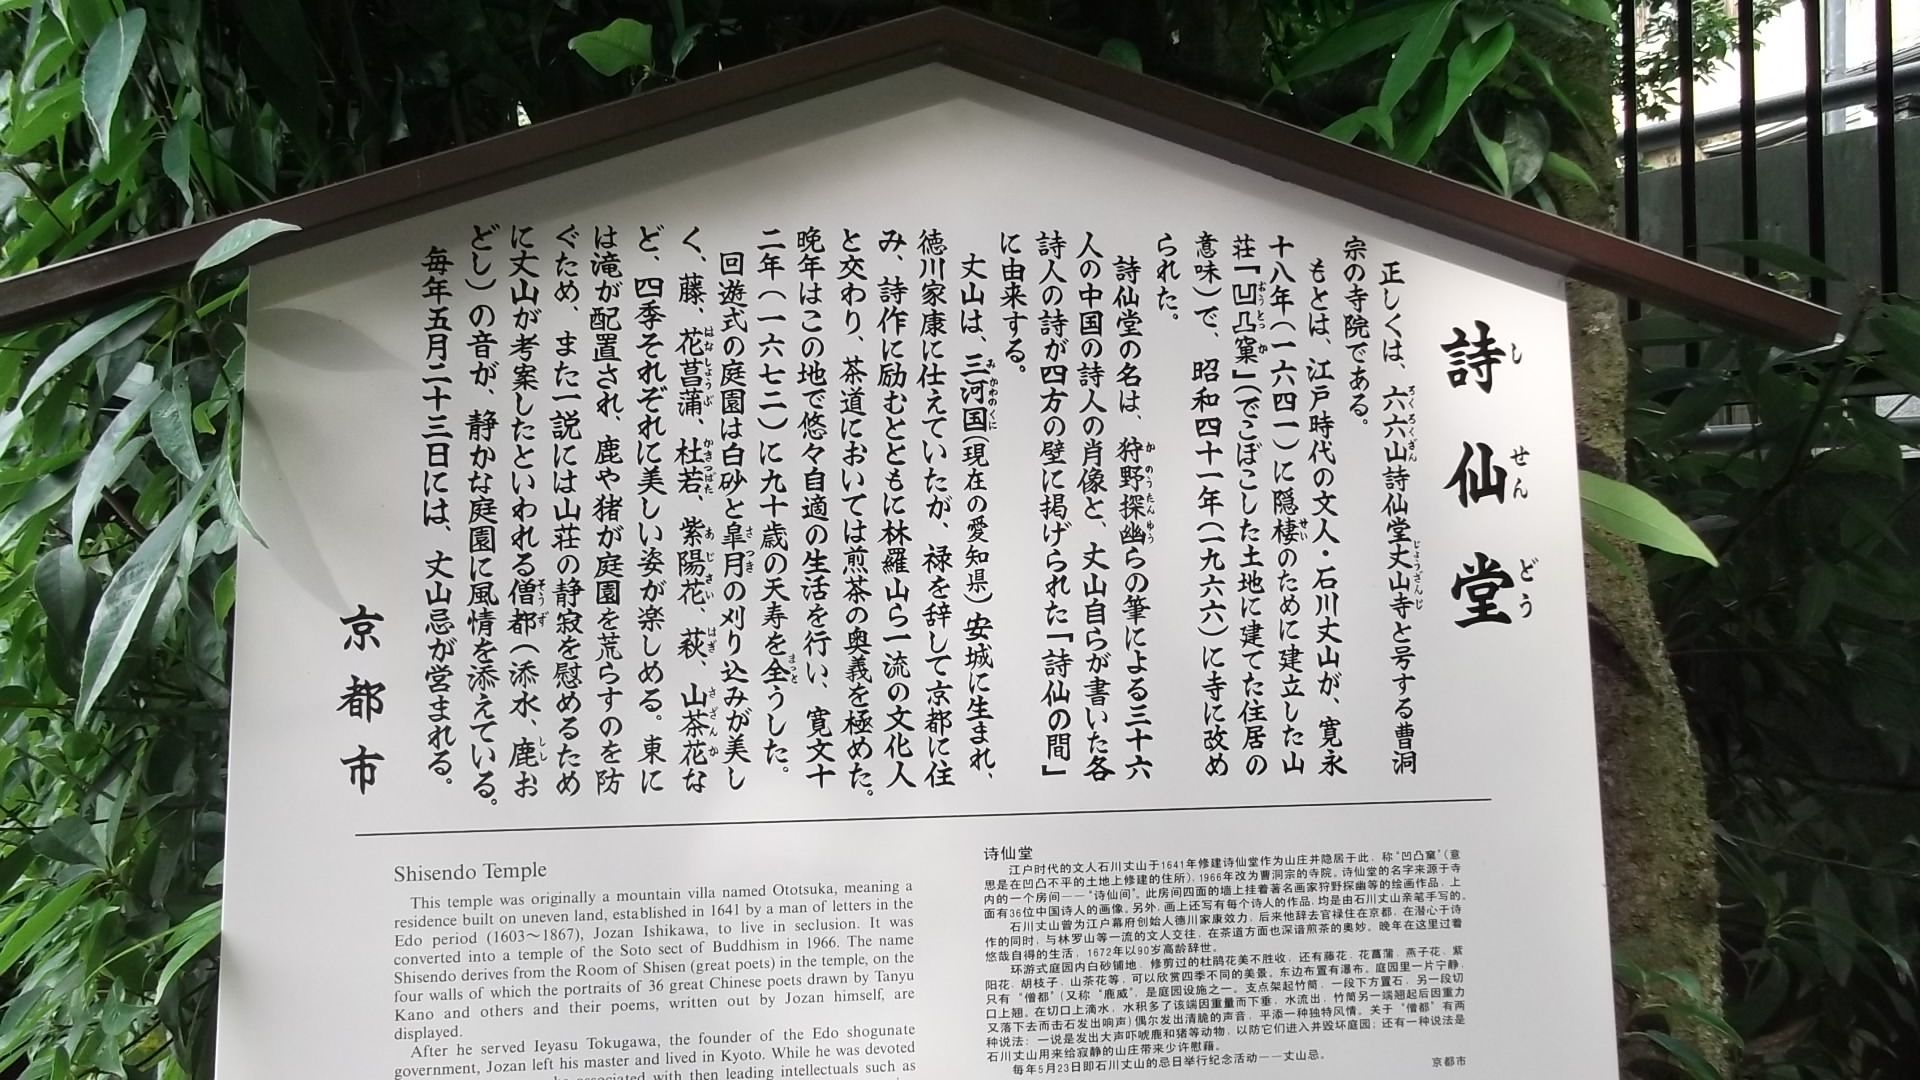 詩仙堂
しせんどう
正しくは、六六山詩仙堂丈山寺と号する曹洞
宗の寺院である。
もとは、江戸時代の文人・石川丈山が、寛永
十八年（一六四一）に隠棲のために建立した山
荘「凹凸窠」（でこぼこした土地に建てた住居の
意味）で、昭和四十一年（一九六六）に寺に改め
られた。
詩仙堂の名は、狩野探幽らの筆による三十六
人の中国の詩人の肖像と、丈山自らが書いた各
詩人の詩が四方の壁に掲げられた「詩仙の間」
に由来する。
丈山は、三河国（現在の愛知県）安城に生まれ、
徳川家康に仕えていたが、禄を辞して京都に住
み、詩作に励むとともに林羅山ら一流の文化人
と交わり、茶道においては煎茶の奥義を極めた。
晩年はこの地で悠々自適の生活を行い、寛文十
二年（一六七二）に九十歳の天寿を全うした。
回遊式の庭園は白砂と皐月の刈り込みが美し
く、藤、花菖蒲、杜若、紫陽花、萩、山茶花な
ど、四季それぞれに美しい姿が楽しめる。東に
は滝が配置され、鹿や猪が庭園を荒らすのを防
ぐため、また一説には山荘の静寂を慰めるため
に丈山が考案したといわれる僧都（添水、鹿お
どし）の音が、静かな庭園に風情を添えている。
毎年五月二十三日には、丈山忌が営まれる。
京都市
Shisendo Temple
This temple was originally a mountain villa named Ototsuka, meaning a
residence built on uneven land, established in 1641 by a man of letters in the
Edo period (1603～1867), Jozan Ishikawa, to live in seclusion. It was
converted into a temple of the Soto sect of Buddhism in 1966. The name
Shisendo derives from the Room of Shisen (great poets) in the temple, on the
four walls of which the portraits of 36 great Chinese poets drawn by Tanyu
Kano and others and their poems, written out by Jozan himself, are
displayed.
After he served Ieyasu Tokugawa, the founder of the Edo shogunate
government, Jozan left his master and lived in Kyoto. While he was devoted
he associated with then leading intellectuals such as
诗仙堂
江户时代的文人石川丈山于1641年修建诗仙堂作为山庄并隐居于此，称“凹凸窠”（意
思是在凹凸不平的土地上修建的住所），1966年改为曹洞宗的寺院。诗仙堂的名字来源于寺
内的一个房间——“诗仙间”。此房间四面的墙上挂着著名画家狩野探幽等的绘画作品，上
面有36位中国诗人的画像。另外，画上还写有每个诗人的作品，均是由石川丈山亲笔手写的。
石川丈山曾为江户幕府创始人德川家康效力，后来他辞去官禄住在京都，在潜心于诗
作的同时，与林罗山等一流的文人交往，在茶道方面也深谙煎茶的奥妙。晚年在这里过着
悠哉自得的生活，1672年以90岁高龄辞世。
环游式庭园内白砂铺地，修剪过的杜鹃花美不胜收，还有藤花、花菖蒲、燕子花、紫
阳花、胡枝子、山茶花等，可以欣赏四季不同的美景。东边布置有瀑布。庭园里一片宁静，
只有“僧都”（又称“鹿威”，是庭园设施之一。支点架起竹筒，一段下方置石，另一段切
口上翘。在切口上滴水，水积多了该端因重量而下垂，水流出，竹筒另一端翘起后因重力
又落下去而击石发出响声）偶尔发出清脆的声音，平添一种独特风情。关于“僧都”有两
种说法：一说是发出大声吓唬鹿和猪等动物，以防它们进入并毁坏庭园；还有一种说法是
石川丈山用来给寂静的山庄带来少许慰藉。
每年5月23日即石川丈山的忌日举行纪念活动——丈山忌。
京都市